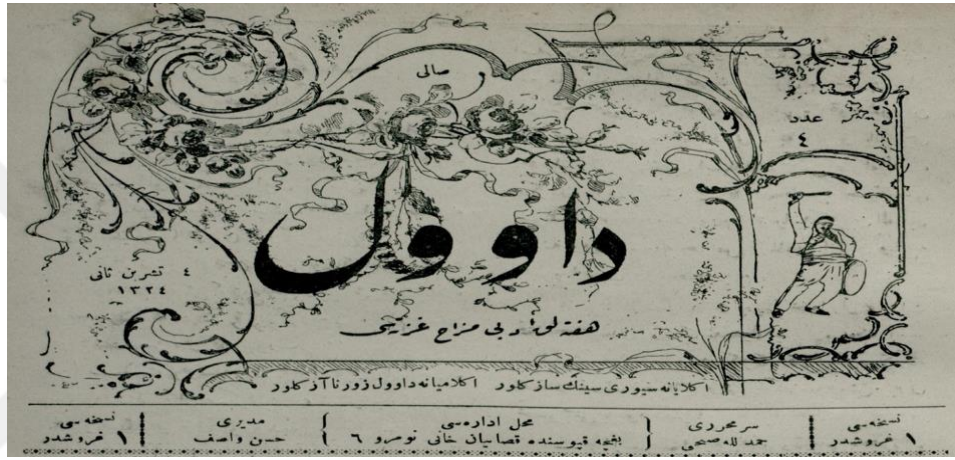 صالی
عدد
٤
داوول
٤ تشرین ثانی
١٣٢٤
هفته لق ادبی مزاح غزته سی
اکلایانه سیوری سینك ساز کلور اکلامیانه داوول زورنا آز کلور
نسخه سی
١ غروشدر
سر محرری
حمد لله صبحی
محل اداره سی
بغچه قپوسنده قصابیان خانی نومرو ٦
مدیری
حسن واصف
نسخه سی
١ غروشدر